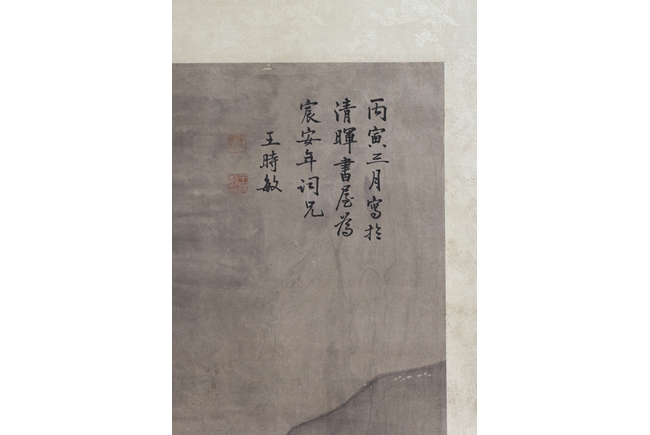 丙寅三月寫於
清暉書屋為
宸安年词兄
王時敏